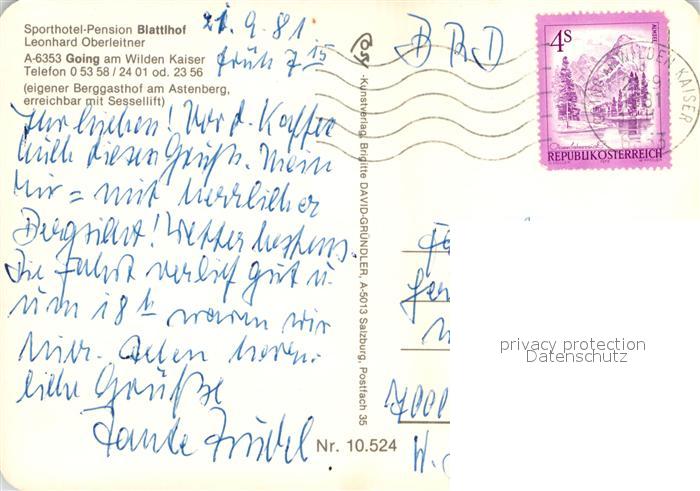 Sporthotel-Pension Blattlhof
Leonhard Oberleitner
A-6353 Going am Wilden Kaiser
Telefon 0 53 58 / 24 01 od. 23 56
(eigener Berggasthof am Astenberg,
erreichbar mit Sessellift)
21.9.81
früh 7 15
Ihr Lieben! Vor d. Kaffee
euch diesen Gruß. Mein
mit herrlicher
Bergsicht! Wetter bestens.
Die Fahrt verlief gut u.
um 18 h waren wir
hier. Allen herz-
liche Grüße
Tante Friedel
Kunstverlag Brigitte DAVID-GRÜNDLER, A-5013 Salzburg, Postfach 35
Nr. 10.524
BRD
4S
ALMSEE
REPUBLIK ÖSTERREICH
GOING AM WILDEN KAISER
7000
W.
privacy protection
Datenschutz